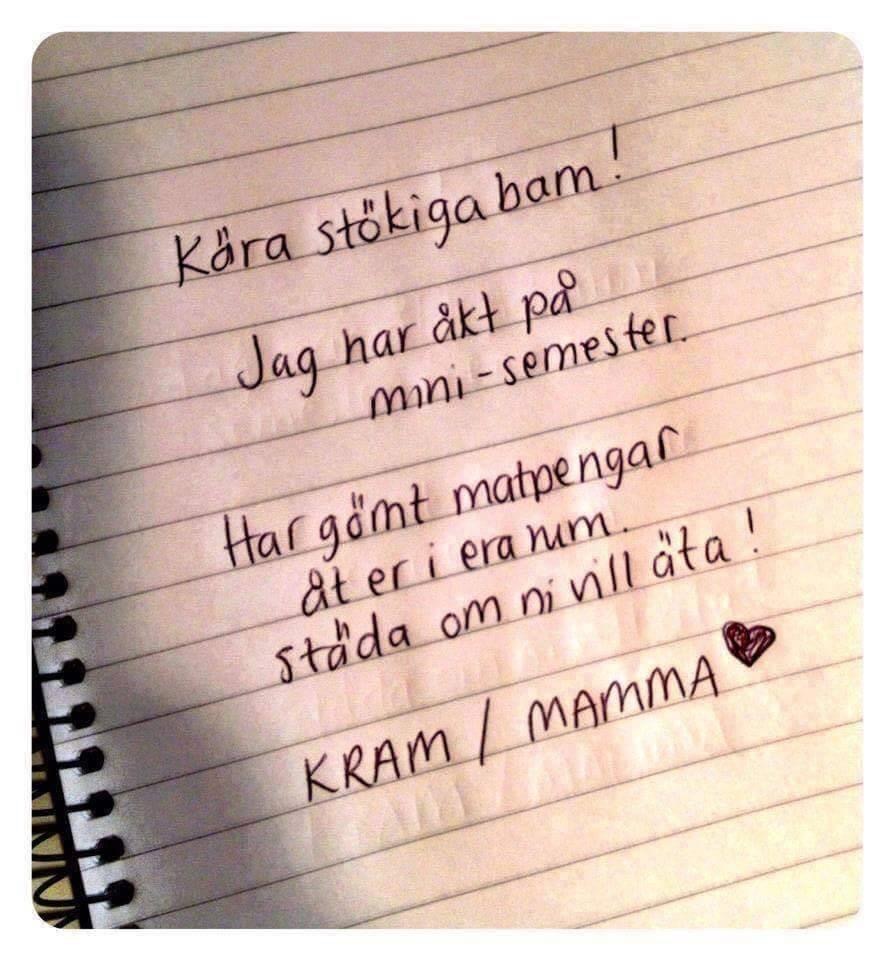 Kära stökiga barn!
Jag har åkt på
mini-semester.
Har gömt matpengar
åt er i era rum.
städa om ni vill äta!
KRAM / MAMMA